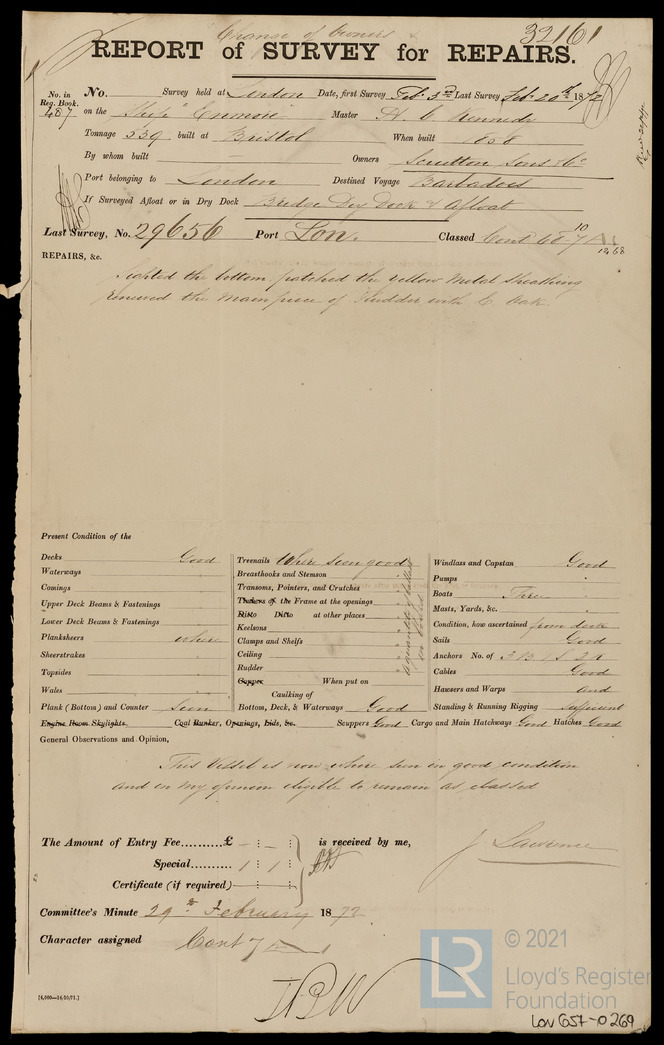 Change of Owners
32161
REPORT of SURVEY for REPAIRS.
No. in Reg. Book.
487
No. Survey held at London Date, first Survey Feb. 3rd Last Survey Feb. 20th 1872
on the Ship "Enmore" Master H C Kennedy
Tonnage 339 built at Bristol When built 1858
By whom built Owners Scrutton Sons & Co
Port belonging to London Destined Voyage Barbadoes
If Surveyed Afloat or in Dry Dock Bridge Dry Dock & Afloat
Last Survey, No. 29656 Port Lon. Classed Cont 68-7
10
12,68
REPAIRS, &c.
Sighted the bottom patched the Yellow Metal Sheathing
renewed the Mainpiece of Rudder with E. Oak.
Present Condition of the
Decks Good
Waterways
Comings
Upper Deck Beams & Fastenings
Lower Deck Beams & Fastenings
Planksheers where
Sheerstrakes
Topsides
Wales
Plank (Bottom) and Counter seen
Treenails Where seen good
Breasthooks and Stemson
Transoms, Pointers, and Crutches
Timbers of the Frame at the openings
Ditto Ditto at other places
Keelsons
Clamps and Shelfs
Ceiling
Rudder
Copper When put on
Caulking of
Bottom, Deck, & Waterways Good
Windlass and Capstan Good
Pumps
Boats Three
Masts, Yards, &c.
Condition, how ascertained from deck
Sails Good
Anchors No. of 3 B 1 S 2 K
Cables Good
Hawsers and Warps and
Standing & Running Rigging sufficient
Engine Room Skylights. Coal Bunker, Openings, Lids, &c. Scuppers Good Cargo and Main Hatchways Good Hatches Good
General Observations and Opinion,
This Vessel is now where seen in good condition
and in my opinion eligible to remain as classed
The Amount of Entry Fee..........£ - : - : is received by me,
Special.......... 1 : 1 :
Certificate (if required)
J Lawrence
Committee's Minute 29th February 1872
Character assigned Cont 7
[6,000—16/10/71.]
JBW
LR
© 2021
Lloyd's Register
Foundation
LON 657-0269